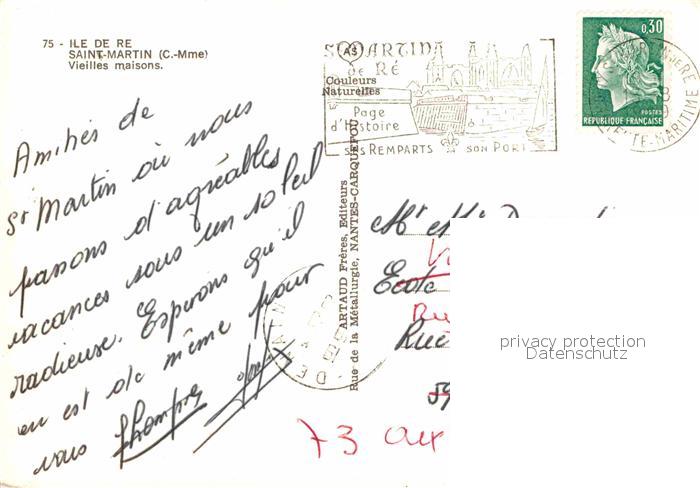 75 - ILE DE RE
SAINT-MARTIN (C.-Mme)
Vieilles maisons.
Amitiés de
St Martin où nous
passons d'agréables
vacances sous un soleil
radieuse. Espérons qu'il
en est de même pour
vous
ST MARTIN
de RÉ
Page
d'Histoire
SES REMPARTS SON PORT
AS
Couleurs
Naturelles
ARTAUD Frères, Editeurs
Rue de la Métallurgie, NANTES-CARQUEFOU
0,30
POSTES
REPUBLIQUE FRANÇAISE
MARITIME
Mr et Mme
Ecole
Rue
59
73 Aix
privacy protection
Datenschutz